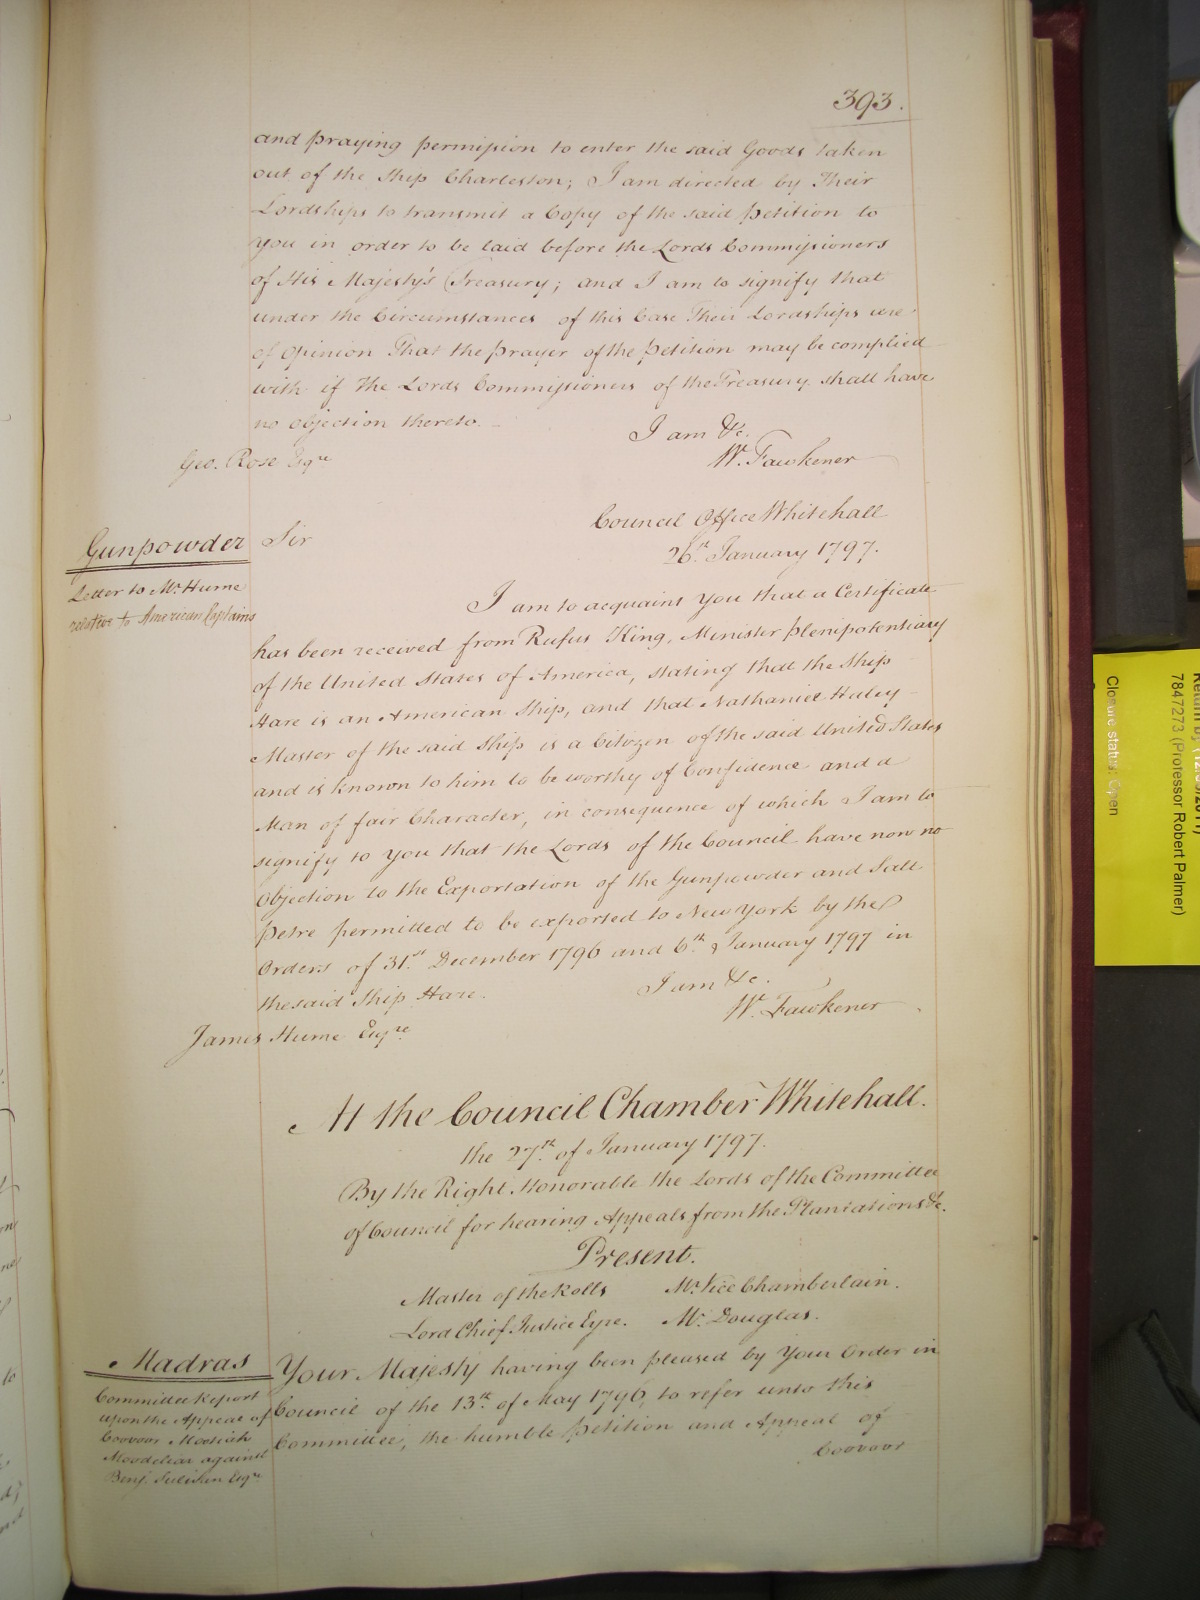 393.
and praying permission to enter the said Goods taken
out of the Ship Charleston; I am directed by Their
Lordships to transmit a Copy of the said Petition to
you in order to be laid before the Lords Commissioners
of His Majesty's Treasury; and I am to signify that
under the Circumstances of this Case Their Lordships were
of Opinion That the prayer of the Petition may be complied
with if The Lords Commissioners of the Treasury shall have
no Objection thereto.
I am &c.
W. Fawkener
Geo. Rose Esqre
Council Office Whitehall
26th January 1797.
Gunpowder
Letter to Mr Hume
relative to American Captains
Sir
I am to acquaint you that a Certificate
has been received from Rufus King, Minister plenipotentiary
of the United States of America, stating that the Ship
Hare is an American Ship, and that Nathaniel Haley
Master of the said Ship is a Citizen of the said United States
and is known to him to be worthy of Confidence and a
Man of fair Character, in consequence of which I am to
signify to you that the Lords of the Council have now no
Objection to the Exportation of the Gunpowder and Salt
Petre permitted to be exported to New York by the
Orders of 31st December 1796 and 6th January 1797 in
the said Ship Hare.
I am &c.
W. Fawkener
James Hume Esqre
At the Council Chamber Whitehall.
the 27th of January 1797.
By the Right Honorable the Lords of the Committee
of Council for hearing Appeals from the Plantations &c.
Present.
Master of the Rolls Mr Vice Chamberlain.
Lord Chief Justice Eyre. Mr Douglas.
Madras
Committee Report
upon the Appeal of
Coovoor
Moodelear against
Benj. Sulivan Esqr
Your Majesty having been pleased by Your Order in
Council of the 13th of May 1796, to refer unto this
Committee, the humble Petition and Appeal of
Coovoor
7847273 (Professor Robert Palmer)
Closure status: Open